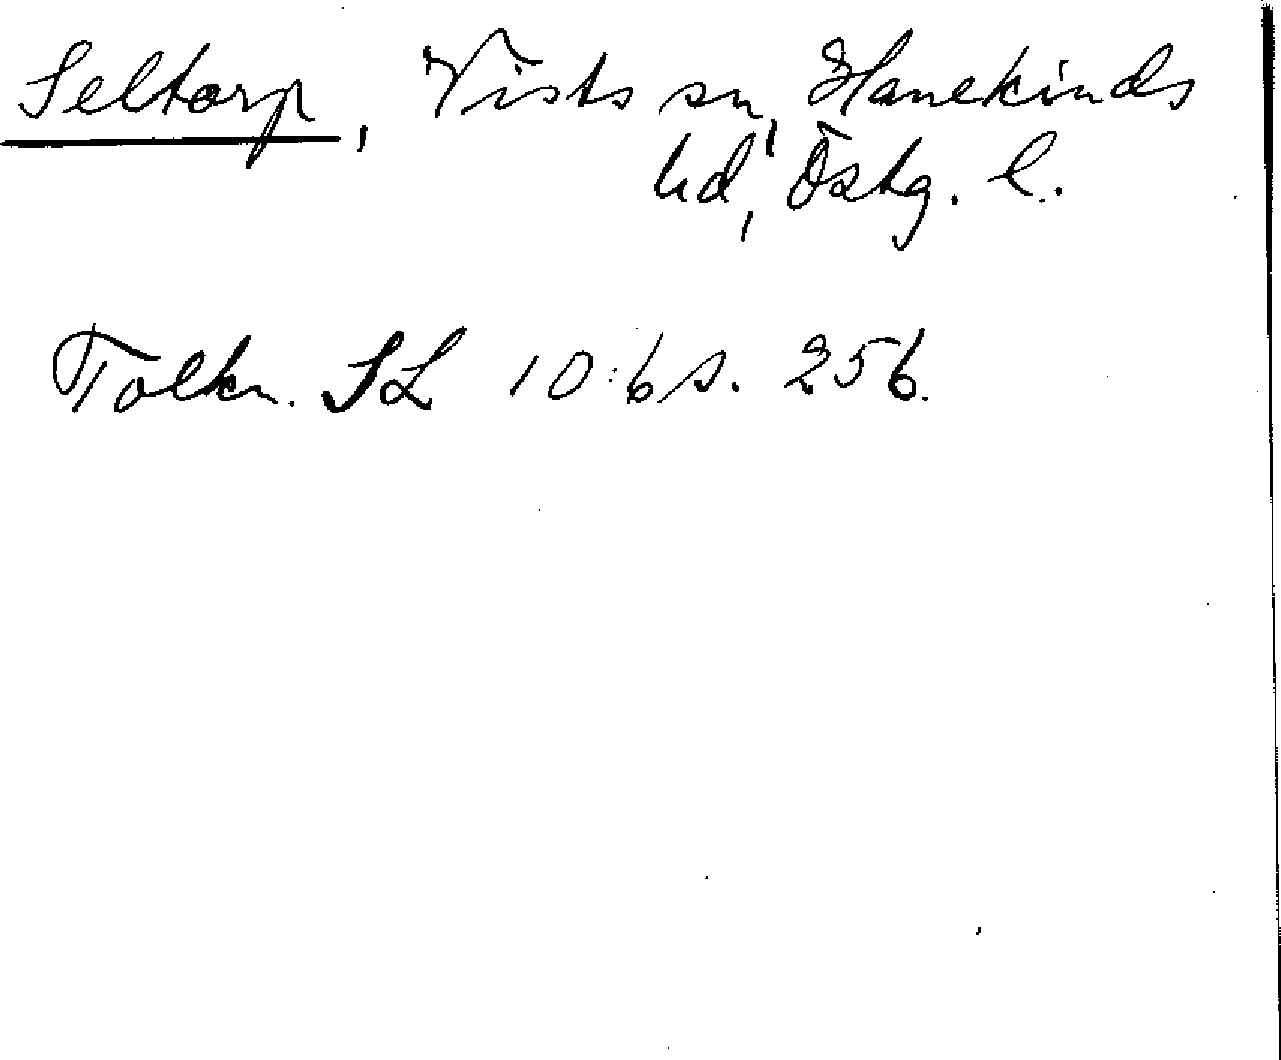 Seltorp, Vists sn, Hanekinds
hd, Östg. l.
Tolkn. SL 10:6 s. 256.